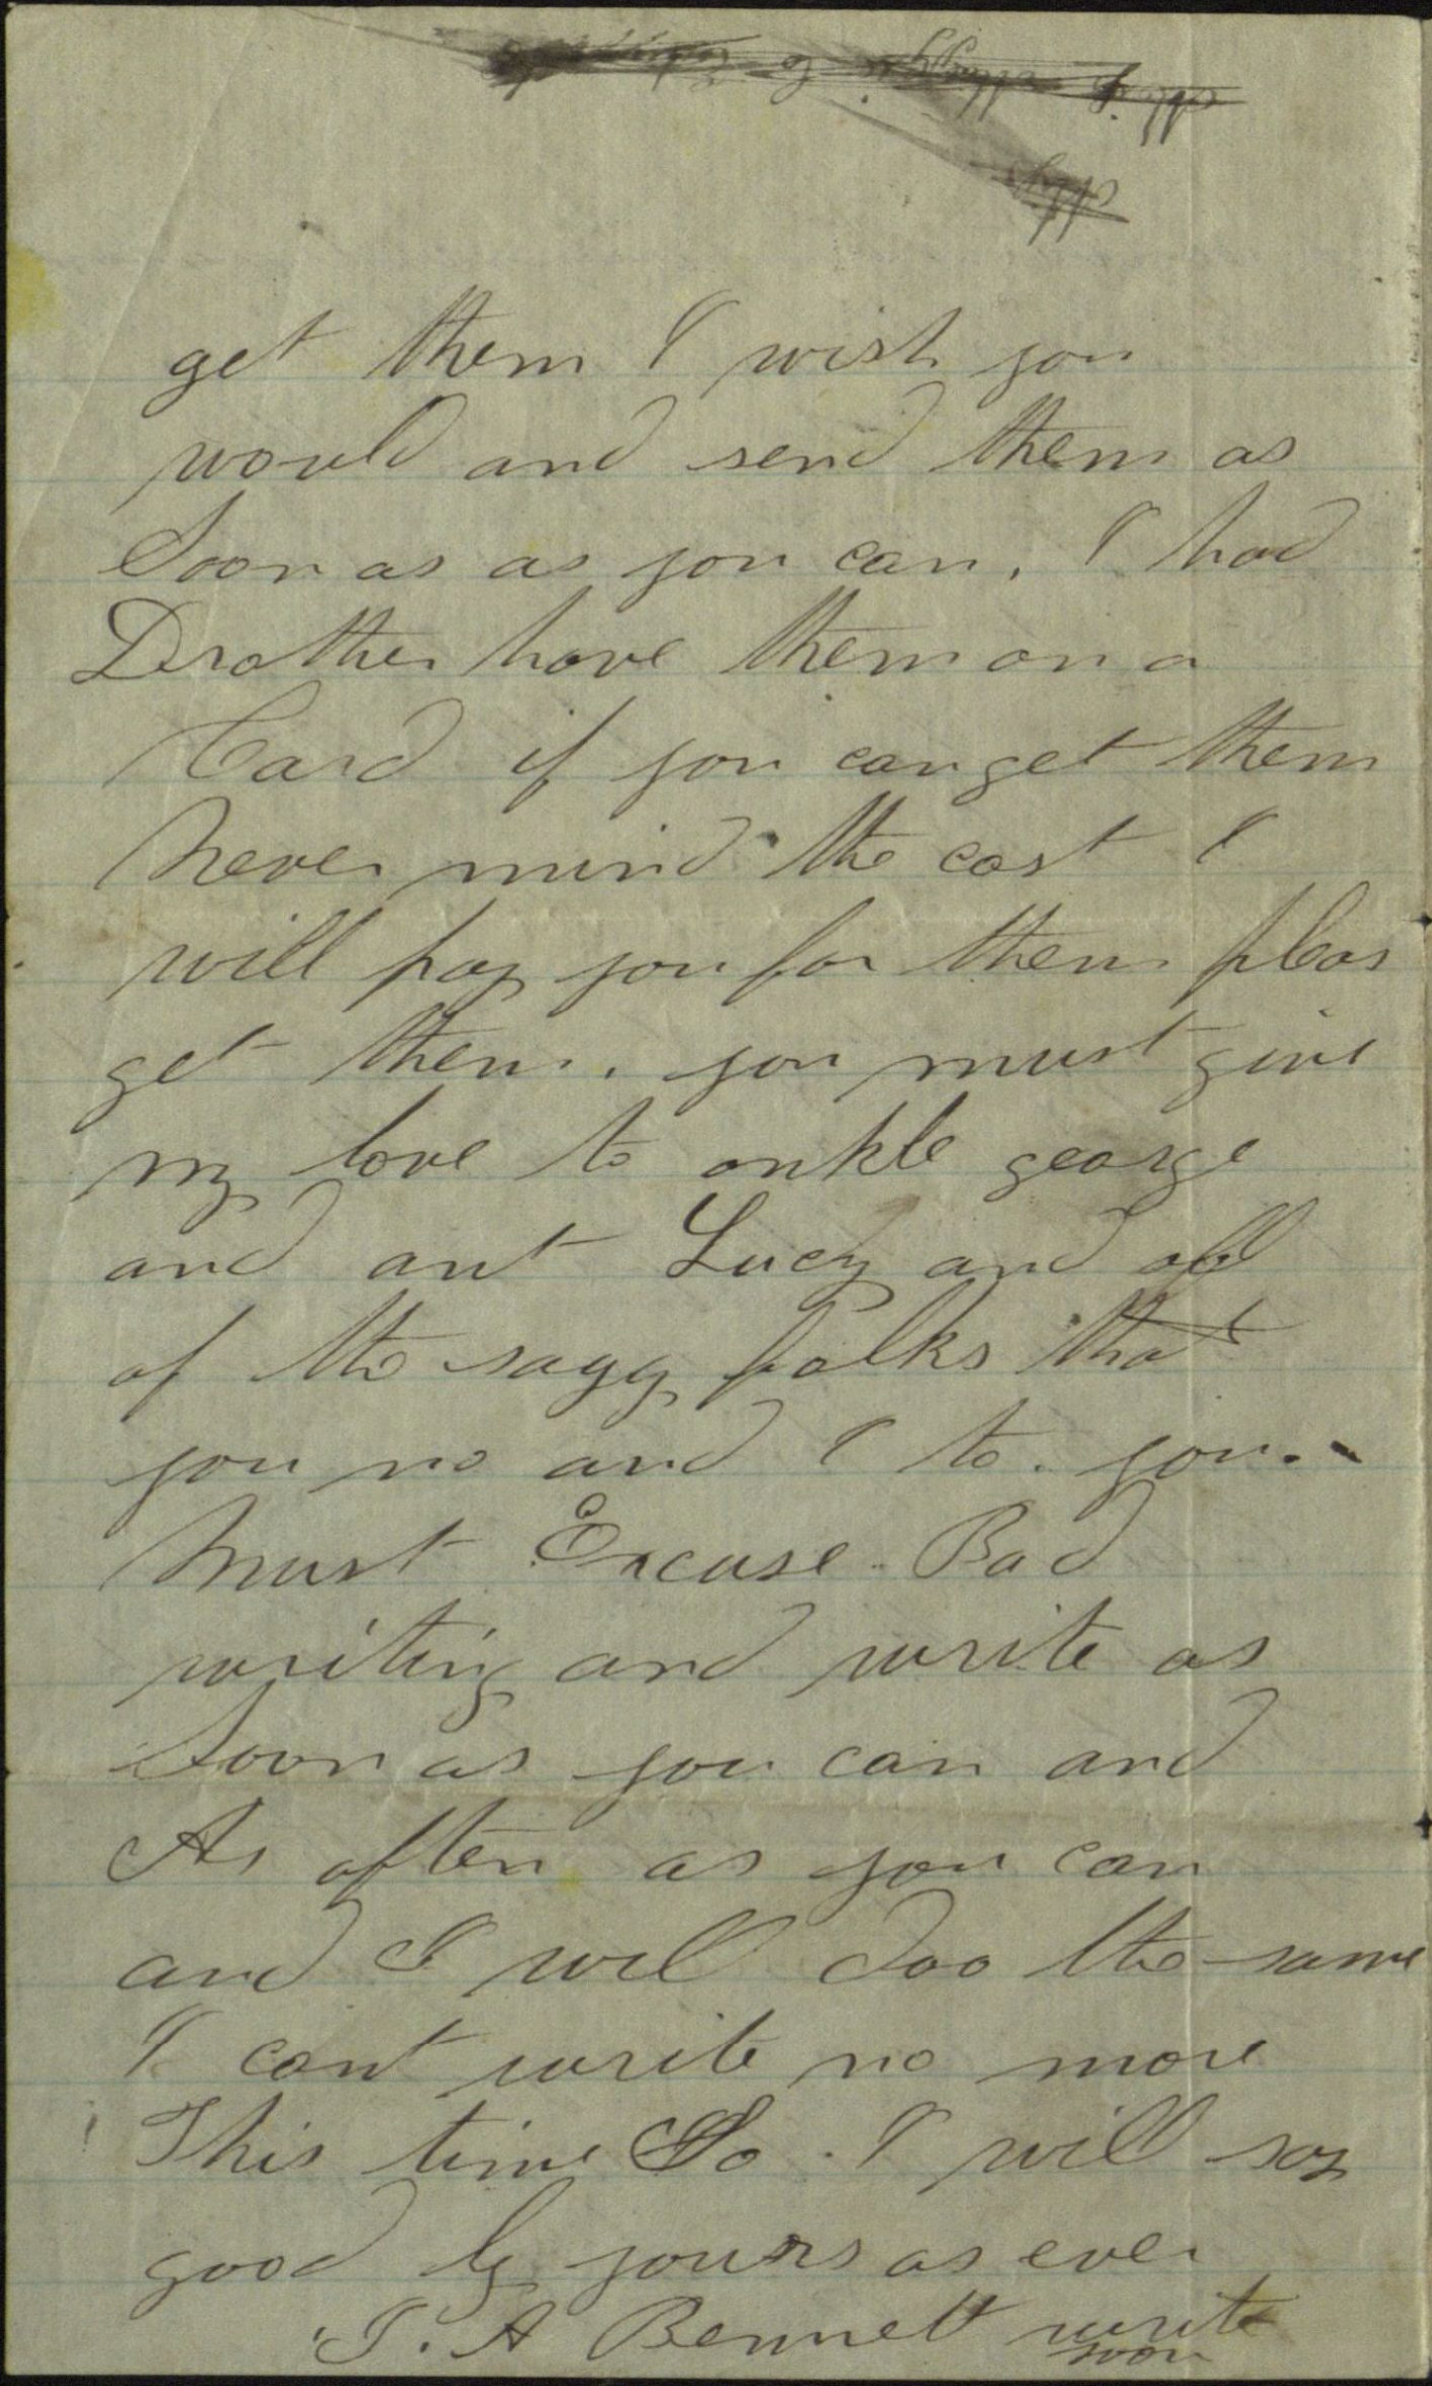 get them I wish you
would and send them as
Soon as as you can, I had
Drather have them on a
Card if you can get them
Never mind the cost I
will pay you for them pleas
get them. you must give
my love to onkle george
and ant Lucy and all
of the sagg folks that
you no and I to. you.
Must Excuse Bad
writing and write as
Soon as you can and
As often as you can
and I will doo the same
I cant write no more
This time So. I will say
good by yours as ever
J. A Bennett write
soon